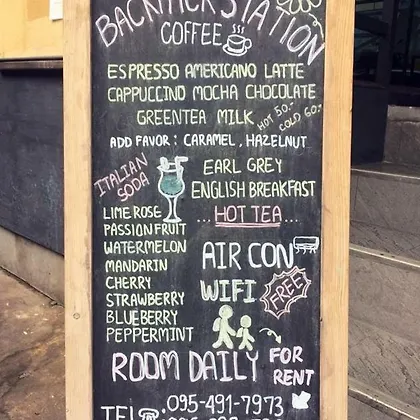 BACKPACK STATION
COFFEE
ESPRESSO AMERICANO LATTE
CAPPUCCINO MOCHA CHOCOLATE
GREENTEA MILK HOT 50.-
COLD 60.-
ADD FAVOR : CARAMEL, HAZELNUT
ITALIAN
SODA
EARL GREY
ENGLISH BREAKFAST
... HOT TEA ...
LIME ROSE
PASSIONFRUIT
WATERMELON
MANDARIN
CHERRY
STRAWBERRY
BLUEBERRY
PEPPERMINT
AIR CON
WIFI FREE
ROOM DAILY FOR
RENT
TEL 095-491-7973